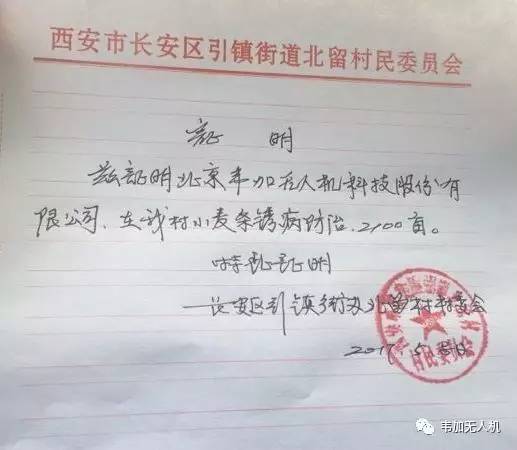 西安市长安区引镇街道北留村民委员会
证 明
兹证明北京韦加无人机科技股份有
限公司、在我村小麦条锈病防治.2100亩。
特此证明
长安区引镇乡街办北留村村委会
2017.5.
村民委员会
韦加无人机